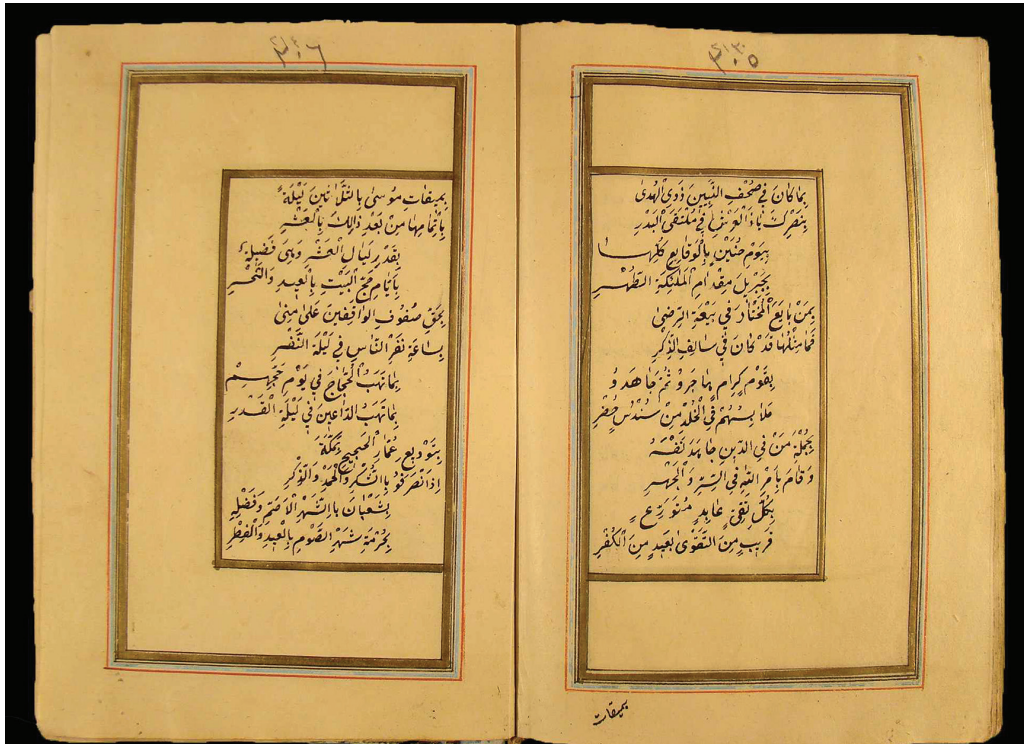 ٣٠٥
بِمَا كَانَ فِي صُحُفِ النَّبِيِّينَ ذَوِي الْهُدىٰ
بِنَصْرِكَ يَا ذَا الْعَرْشِ فِي مُلْتَقَى الْبَدْرِ
بِيَوْمِ حُنَيْنٍ بِالْوَقَايِعِ كُلِّهَا
بِجِبْرِيلَ مِقْدَامِ الْمَلٰئِكَةِ الطُّهْرِ
بِمَنْ بَايَعَ الْمُخْتَارَ فِي بَيْعَةِ الرِّضىٰ
فَمَا مِثْلُهَا قَدْ كَانَ فِي سَالِفِ الذِّكْرِ
بِقَوْمٍ كِرَامٍ هَاجَرُو ثُمَّ جَاهَدُو
مَلَابِسُهُمْ فِي الْخُلْدِ مِنْ سُنْدُسٍ خُضْرٍ
بِجُمْلَةِ مَنْ فِي الدِّينِ جَاهَدَ نَفْسَهُ
وَقَامَ بِاَمْرِ اللّٰهِ فِي السِّرِّ وَالْجَهْرِ
بِكُلِّ تَقِيٍّ عَابِدٍ مُتَوَرِّعٍ
قَرِيبٍ مِنَ التَّقْوىٰ بَعِيدٍ مِنَ الْكُفْرِ
بميقات
٣٠٦
بِمِيقَاتِ مُوسىٰ بِالثَّلَاثِينَ لَيْلَةً
بِاِتْمَامِهَا مِنْ بَعْدِ ذَالِكَ بِالْعَشْرِ
بِقَدْرِ لَيَالِ الْعَشْرِ وَهِيَ فَضِيلَةٌ
بِاَيَّامِ حَجِّ الْبَيْتِ بِالْعِيدِ وَالنَّحْرِ
بِحَقِّ صُفُوفِ الْوَاقِفِينَ عَلىٰ مِنىٰ
بِسَاعَةِ نَفْرِ النَّاسِ فِي لَيْلَةِ النَّفْرِ
بِمَا تَهَبُ الْحُجَّاجَ فِي يَوْمِ حَجِّهِمْ
بِمَا تَهَبُ الدَّاعِينَ فِي لَيْلَةِ الْقَدْرِ
بِتَوْدِيعِ عُمَّارِ الْحَجِيجِ بِمَكَّةَ
اِذَا انْصَرَفُو بِالشُّكْرِ وَالْحَمْدِ وَالذِّكْرِ
بِشَعْبَانَ بِالشَّهْرِ الْاَصَمِّ وَفَضْلِهِ
بِحُرْمَةِ شَهْرِ الصَّوْمِ بِالْعِيدِ وَالْفِطْرِ